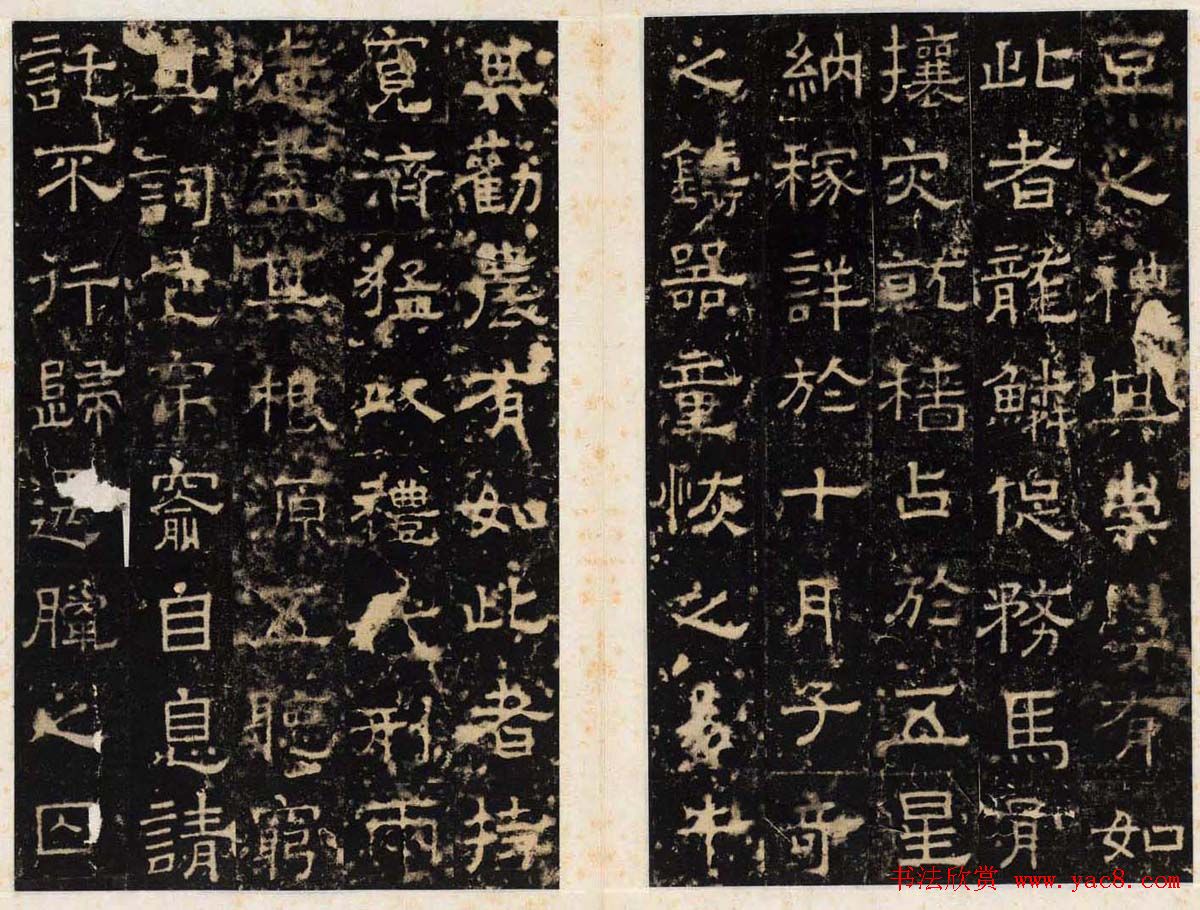 豆之禮其崇學有如
此者龍鱗促務馬骨
攘灾就穡占於五星
納稼詳於十月子奇
之鑄器童恢之
其勸農有如此者持
寬濟猛政禮刑兩
盡其根源五聽窮
其詞色牢自息請
託不行歸之囚
书法欣赏 www.yac8.com